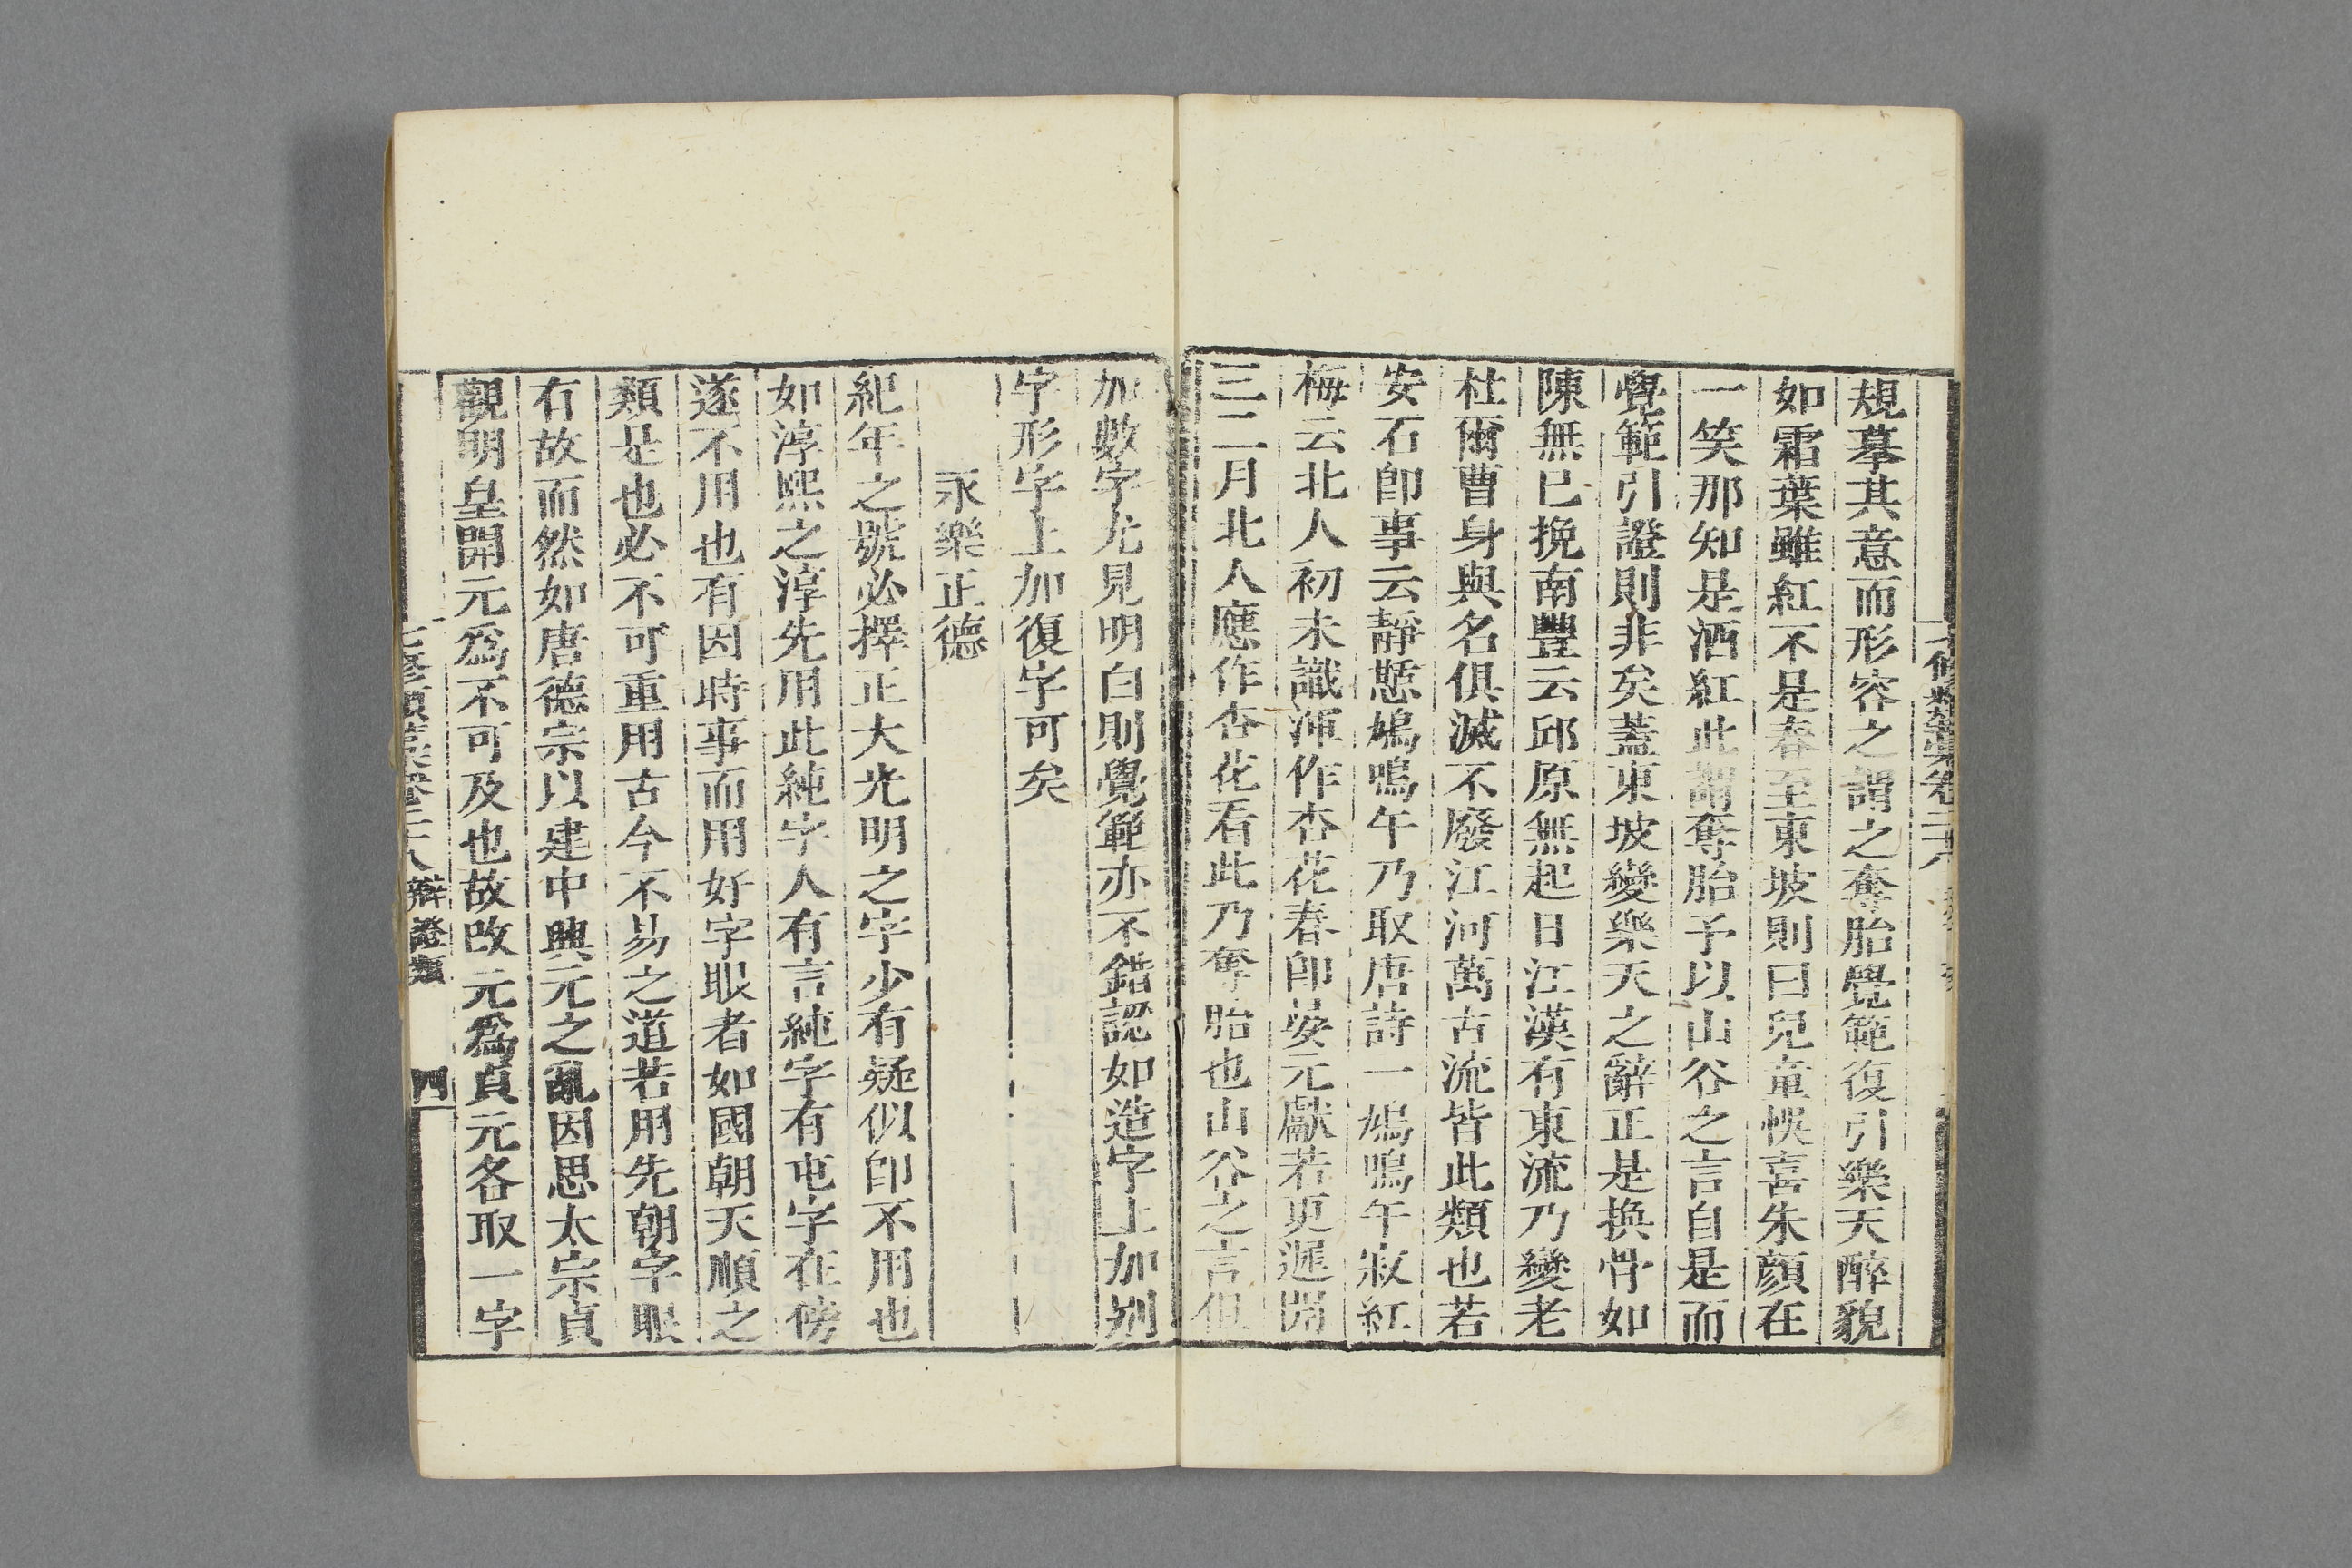 規摹其意而形容之謂之奪胎覺範復引樂天醉貌
如霜葉雖紅不是春至東坡則曰兒童悞喜朱顔在
一笑那知是洒紅此謂奪胎予以山谷之言自是而
覺範引證則非矣蓋東坡變樂天之辭正是換骨如
陳無已挽南豐云邱原無起日江漢有東流乃變老
杜爾曹身與名俱滅不廢江河萬古流皆此類也若
安石卽事云靜憇鳩鳴午乃取唐詩一鳩鳴午寂紅
梅云北人初未識渾作杏花春卽晏元獻若更遲開
三二月北人應作杏花看此乃奪胎也山谷之言但
加數字尤見明白則覺範亦不錯認如造字上加别
字形字上加復字可矣
永樂正德
紀年之號必擇正大光明之字少有疑似卽不用也
如淳熙之淳先用此純字人有言純字有屯字在傍
遂不用也有因時事而用好字眼者如國朝天順之
類是也必不可重用古今不易之道若用先朝字眼
右故而然如唐德宗以建中興元之亂因思太宗貞
觀明皇開元爲不可及也故改元爲貞元各取一字
七修類藁卷二十八 辯證類 四